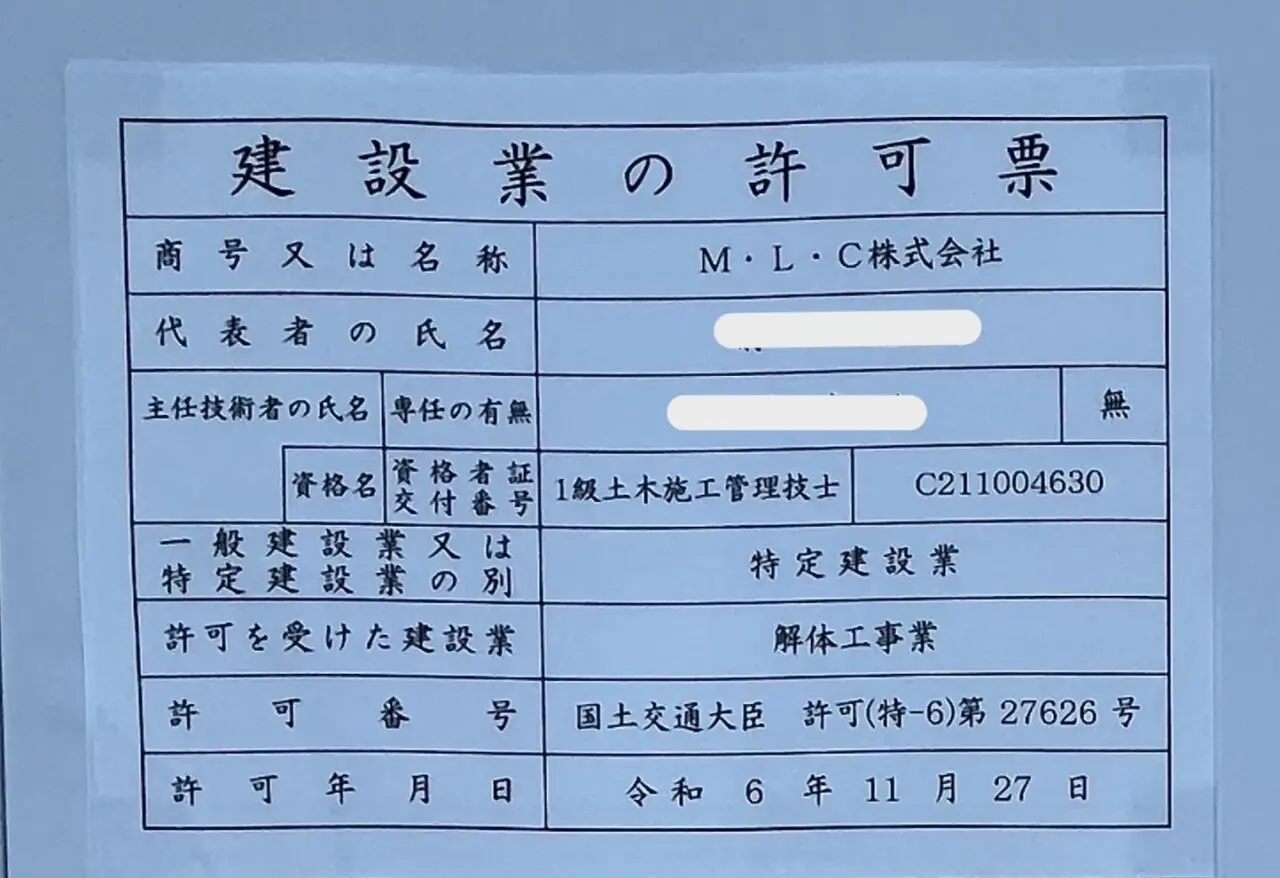 建設業の許可票
商号又は名称 M・L・C株式会社
代表者の氏名
主任技術者の氏名 専任の有無 無
資格名 資格者証交付番号 1級土木施工管理技士 C211004630
一般建設業又は
特定建設業の別 特定建設業
許可を受けた建設業 解体工事業
許可番号 国土交通大臣 許可(特-6)第 27626 号
許可年月日 令和 6 年 11 月 27 日